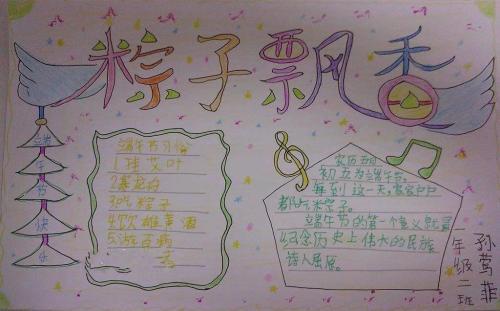 粽子飘香
端午节快乐
端午节习俗
1挂艾叶
2赛龙舟
3吃粽子
4饮雄黄酒
5游百病
农历五月
初五为端午节。
每到这一天,家家户户
都吃粽子。
端午节的第一个意义就是
纪念历史上伟大的民族
诗人屈原。
一年级二班
孙莺菲